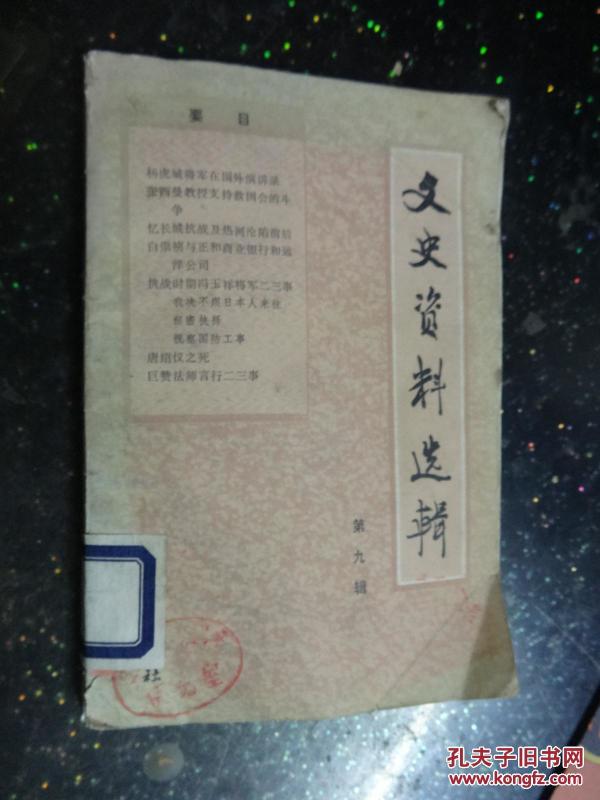 要目
杨虎城将军在国外演讲录
张西曼教授支持救国会的斗
争
忆长城抗战及热河沦陷前后
白崇禧与正和商业银行和远
洋公司
抗战时期冯玉祥将军二三事
我决不跟日本人来往
秘密抉择
视察国防工事
唐绍仪之死
巨赞法师言行二三事
文史资料选辑
第九辑
社
孔夫子旧书网
www.kongfz.com